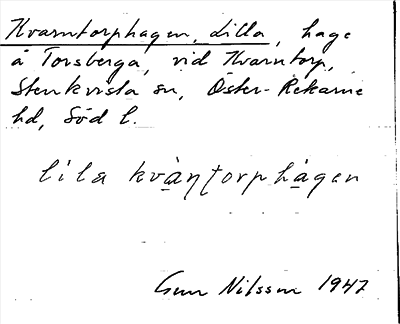 Kvarntorphagen, Lilla, hage
å Torsberga, vid Kvarntorp,
Stenkvista sn, Öster-Rekarne
hd, Söd l.
lila kvàṇtorphàgen
Gun Nilsson 1947